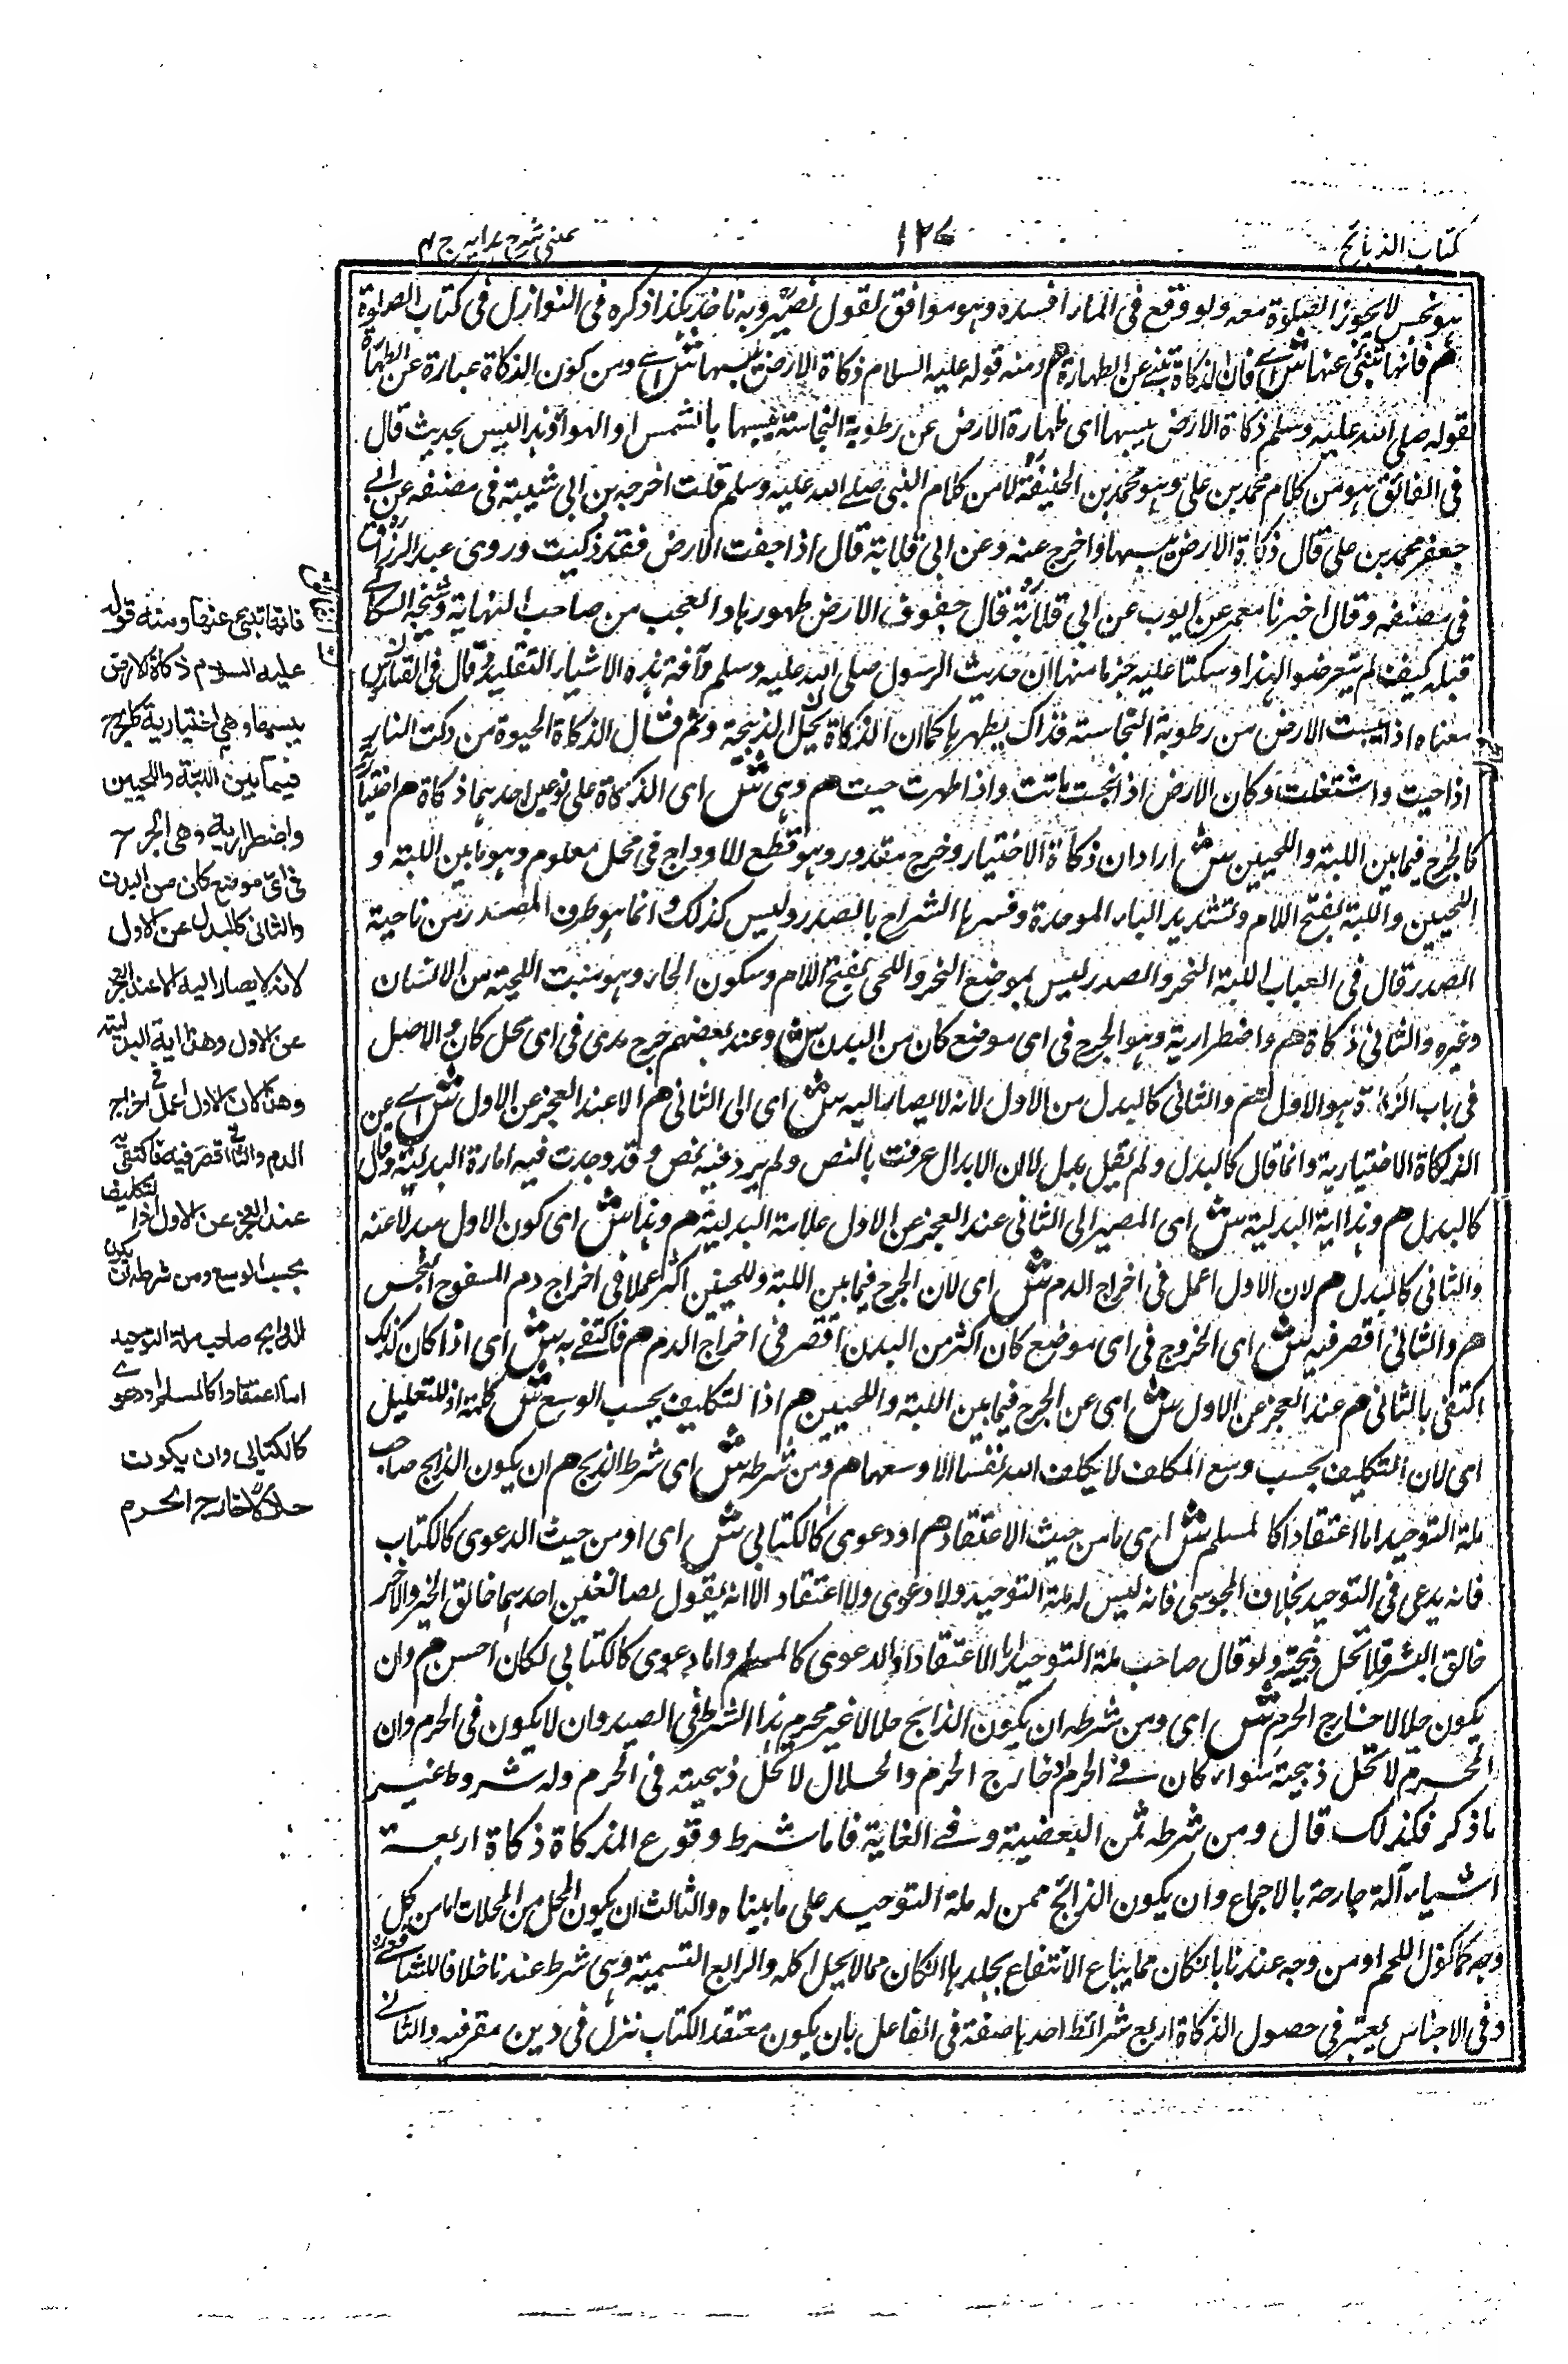 كتاب الذبائح
١٢٧
عينى شرح هدايه ج ٤
هو نجس لا يجوز الصلوة معه ولو وقع فى الماء افسده وهو موافق لقول نصير وبه ناخذ هكذا ذكره فى النوازل فى كتاب الصلوة
هم فانها تنبئ عنها ش اے فان الذكاة تنبئ عن الطهارة هم ومنه قوله عليه السلام ذكاة الارض يبسها ش اے ومن كون الذكاة عبارة عن الطهارة
قوله صلى الله عليه وسلم ذكاة الارض يبسها اى طهارة الارض عن رطوبة النجاسة يبسها بالشمس او الهواء وهذا ليس بحديث قال
فى الفائق هو من كلام محمد بن على وهو محمد بن الحنيفة لا من كلام النبى صلے الله عليه وسلم قلت اخرجه بن ابى شيبة فى مصنفه عن ابے
جعفر محمد بن على قال ذكاة الارض يبسها واخرج عنه وعن ابى قلابة قال اذا جفت الارض فقد ذكيت وروى عبد الرزاق
فى مصنفه وقال اخبرنا معمر عن ايوب عن ابى قلابة قال جفوف الارض طهورها والعجب من صاحب النهاية وشيخه السكاكے
قبله كيف لم يتعرضوا لهذا وسكتا عليه جزما منها ان حديث الرسول صلى الله عليه وسلم وآفة هذه الاشياء التقليد وقال فى الفائق
معناه اذا يبست الارض من رطوبة النجاسة فذاك يطهرها كما ان الذكاة يحل الذبيحة وثم قال الذكاة الحيوة من ذكت النار
اذا حيت واشتغلت وكان الارض اذا نجست ماتت واذا طهرت حيت هم وهى ش اى الذكاة على نوعين احدهما ذكاة هم اختيارية
كالجرح فيما بين اللبة واللحيين ش اراد ان ذكاة الاختيار وخرج مقدور وهو قطع الاوداج فى محل معلوم وهو ما بين اللبة و
اللحيين واللبة بفتح اللام وتشديد الباء الموحدة وفسرها الشراح بالصدر وليس كذلك وانما هو طرف الصدر من ناحية
الصدر قال فى العباب اللبة النحر والصدر ليس بموضع النحر واللحى بفتح اللام وسكون الحاء وهو منبت اللحية من الانسان
وغيره والثانى ذكاة هم واضطرارية وهو الجرح فى اى موضع كان من البدن ش وعند بعضهم جرح مدى فى اى محل كان والاصل
فى باب الذكاة هو الاول هم والثانى كالبدل من الاول لانه لا يصار اليه ش اى الى الثانى هم الا عند العجز عن الاول ش اے عن
الذكاة الاختيارية وانما قال كالبدل ولم يقل بدل لان الابدال عرفت بالنص ولم يرد فيه نص وقد وجدت فيه امارة البدلية وقال
كالبدل هم وهذا اية البدلية ش اى المصير الى الثانى عند العجز عن الاول علامة البدلية هم وهذا ش اى كون الاول مبدلا عنه
والثانى كالبدل هم لان الاول اعمل فى اخراج الدم ش اى لان الجرح فيما بين اللبة وللحيين اكثر عملا فى اخراج دم المسفوح النجس
هم والثانى اقصر فيه ش اى الخروج فى اى موضع كان اكثر من البدن اقصر فى اخراج الدم هم فاكتفے به ش اى اذا كان كذلك
اكتفى بالثانى هم عند العجز عن الاول ش اى عن الجرح فيما بين اللبة واللحيين هم اذا لتكليف بحسب الوسع ش كلمة اذ للتعليل
اى لان التكليف بحسب وسع المكلف لا يكلف الله نفسا الا وسعها هم ومن شرطه ش اى شرط الذبح هم ان يكون الذابح صاحب
ملة التوحيد اما اعتقادا كالمسلم ش اى اما من حيث الاعتقاد هم او دعوى كالكتابى ش اى او من حيث الدعوى كالكتاب
فانه يدعى فى التوحيد بخلاف المجوسى فانه ليس له ملة التوحيد ولا دعوى ولا اعتقاد الا انه يقول بصانعين احدهما خالق الخير والاخر
خالق الشر فلا تحل ذبيحته ولو قال صاحب ملة التوحيد اما الاعتقاد او الدعوى كالمسلم واما دعوى كالكتابى لكان احسن هم وان
يكون حلالا خارج الحرم ش اى ومن شرطه ان يكون الذابح حلالا غير محرم هذا الشرط فى الصيد وان لا يكون فى الحرم وان
المحرم لا تحل ذبيحته سواء كان فے الحرم او خارج الحرم والحلال لا تحل ذبيحته فى الحرم وله شروط غير
ما ذكر فكذلك قال ومن شرطه ثمن البعضية وفے الغاية فاما شرط وقوع المذكاة ذكاة اربعة
اشياء آلة جارحة بالاجماع وان يكون الذابح ممن له ملة التوحيد على ما بيناه والثالث ان يكون المحل من المحلات اما من كل
وجه كماكول اللحم او من وجه عندنا بان كان مما يباع الانتفاع بجلدها ان كان مما لا يحل اكله والرابع التسمية وهى شرط عندنا خلافا للشافعے
وفى الاجناس يعتبر فى حصول الذكاة اربع شرائط احدها صفة فى الفاعل بان يكون معتقد الكتاب نزل فى دين مقر فيه والثانے
فانها تنبئ عنها ومنه قوله
عليه السلام ذكاة الارض
يبسها وهى اختيارية كالجرح
فيما بين اللبة واللحيين
واضطرارية وهى الجرح
فى اى موضع كان من البدن
والثانى كالبدل عن الاول
لانه لا يصار اليه الا عند العجز
عن الاول وهذا اية البدلية
وهذا لان الاول اعمل فى اخراج
الدم والثانى اقصر فيه فاكتفى به
عند العجز عن الاول اذا لتكليف
بحسب الوسع ومن شرطه ان يكون
الذابح صاحب ملة التوحيد
اما اعتقادا كالمسلم او دعوے
كالكتابى وان يكون
حلالا خارج الحرم